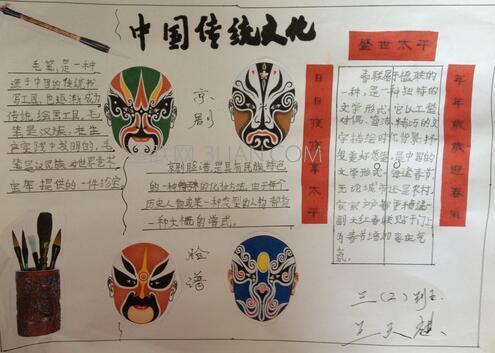 中国传统文化
毛笔，是一种
源于中国的传统书
写工具，也逐渐成为
传统绘画工具，毛
笔是汉族
产实践中发明的，毛
笔是汉民族对世界艺术
宝库提供的一件珍宝
京剧
京剧脸谱，是具有民族特色
的一种特殊的化妆方法，由于每个
历史人物或某一种类型的人物都有
一种大概的谱式。
脸谱
盛世太平
日日夜夜享太平
年年岁岁迎春風
春联属于楹联的
一种，是一种独特的
文学形式，它以工整
对偶、简洁、精巧的文
字描绘时代背景，抒
发美好愿望，是中国的
文学形式。每逢春节，
无论城市还是农村，
家家户户都要精选一
副大红春联贴于门上
为春节增加喜庆气
氛。
三（2）班